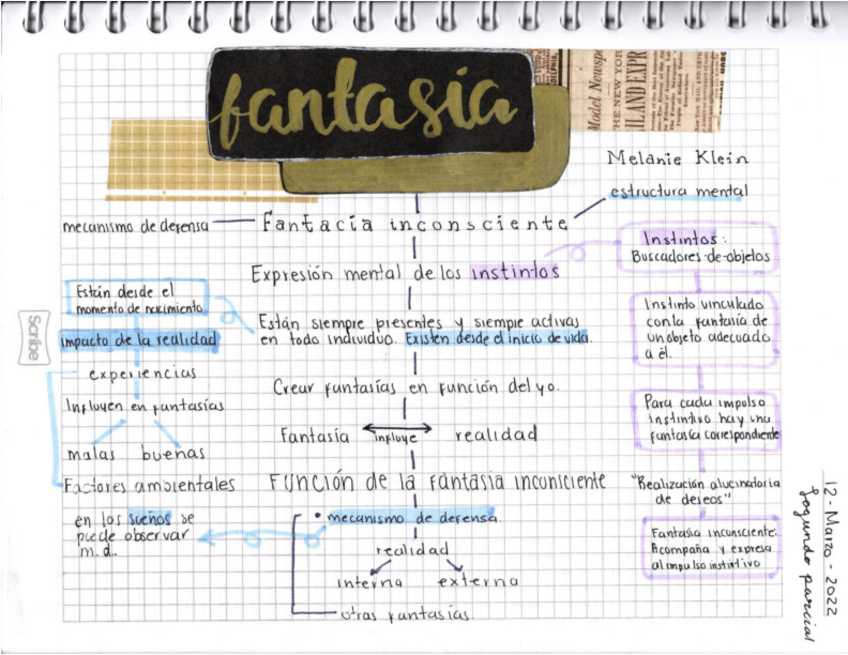 fantasia
Model Newsp
THE NEW YOR
ILAND EXPR
Melanie Klein
estructura mental
mecanismo de defensa
Fantacia inconsciente
Instintos:
Buscadores de objetos
Expresión mental de los instintos
Están desde el
momento de nacimiento
Están siempre presentes y siempre activas
en todo individuo. Existen desde el inicio de vida.
Instinto vinculado
con la fantasía de
un objeto adecuado
a él.
impacto de la realidad
Scribe
experiencias
Influyen en fantasías
malas buenas
Factores ambientales
Crear fantasías en función del yo.
Fantasía influye realidad
Para cada impulso
instintivo hay una
fantasía correspondiente
Función de la fantasia inconiciente
"Realización alucinatoria
de deseos"
en los sueños se
puede observar
m.d.
• mecanismo de defensa.
realidad
interna externa
otras fantasías.
Fantasía inconsciente
Acompaña y expresa
al impulso instintivo
12 - Marzo - 2022
Segundo parcial